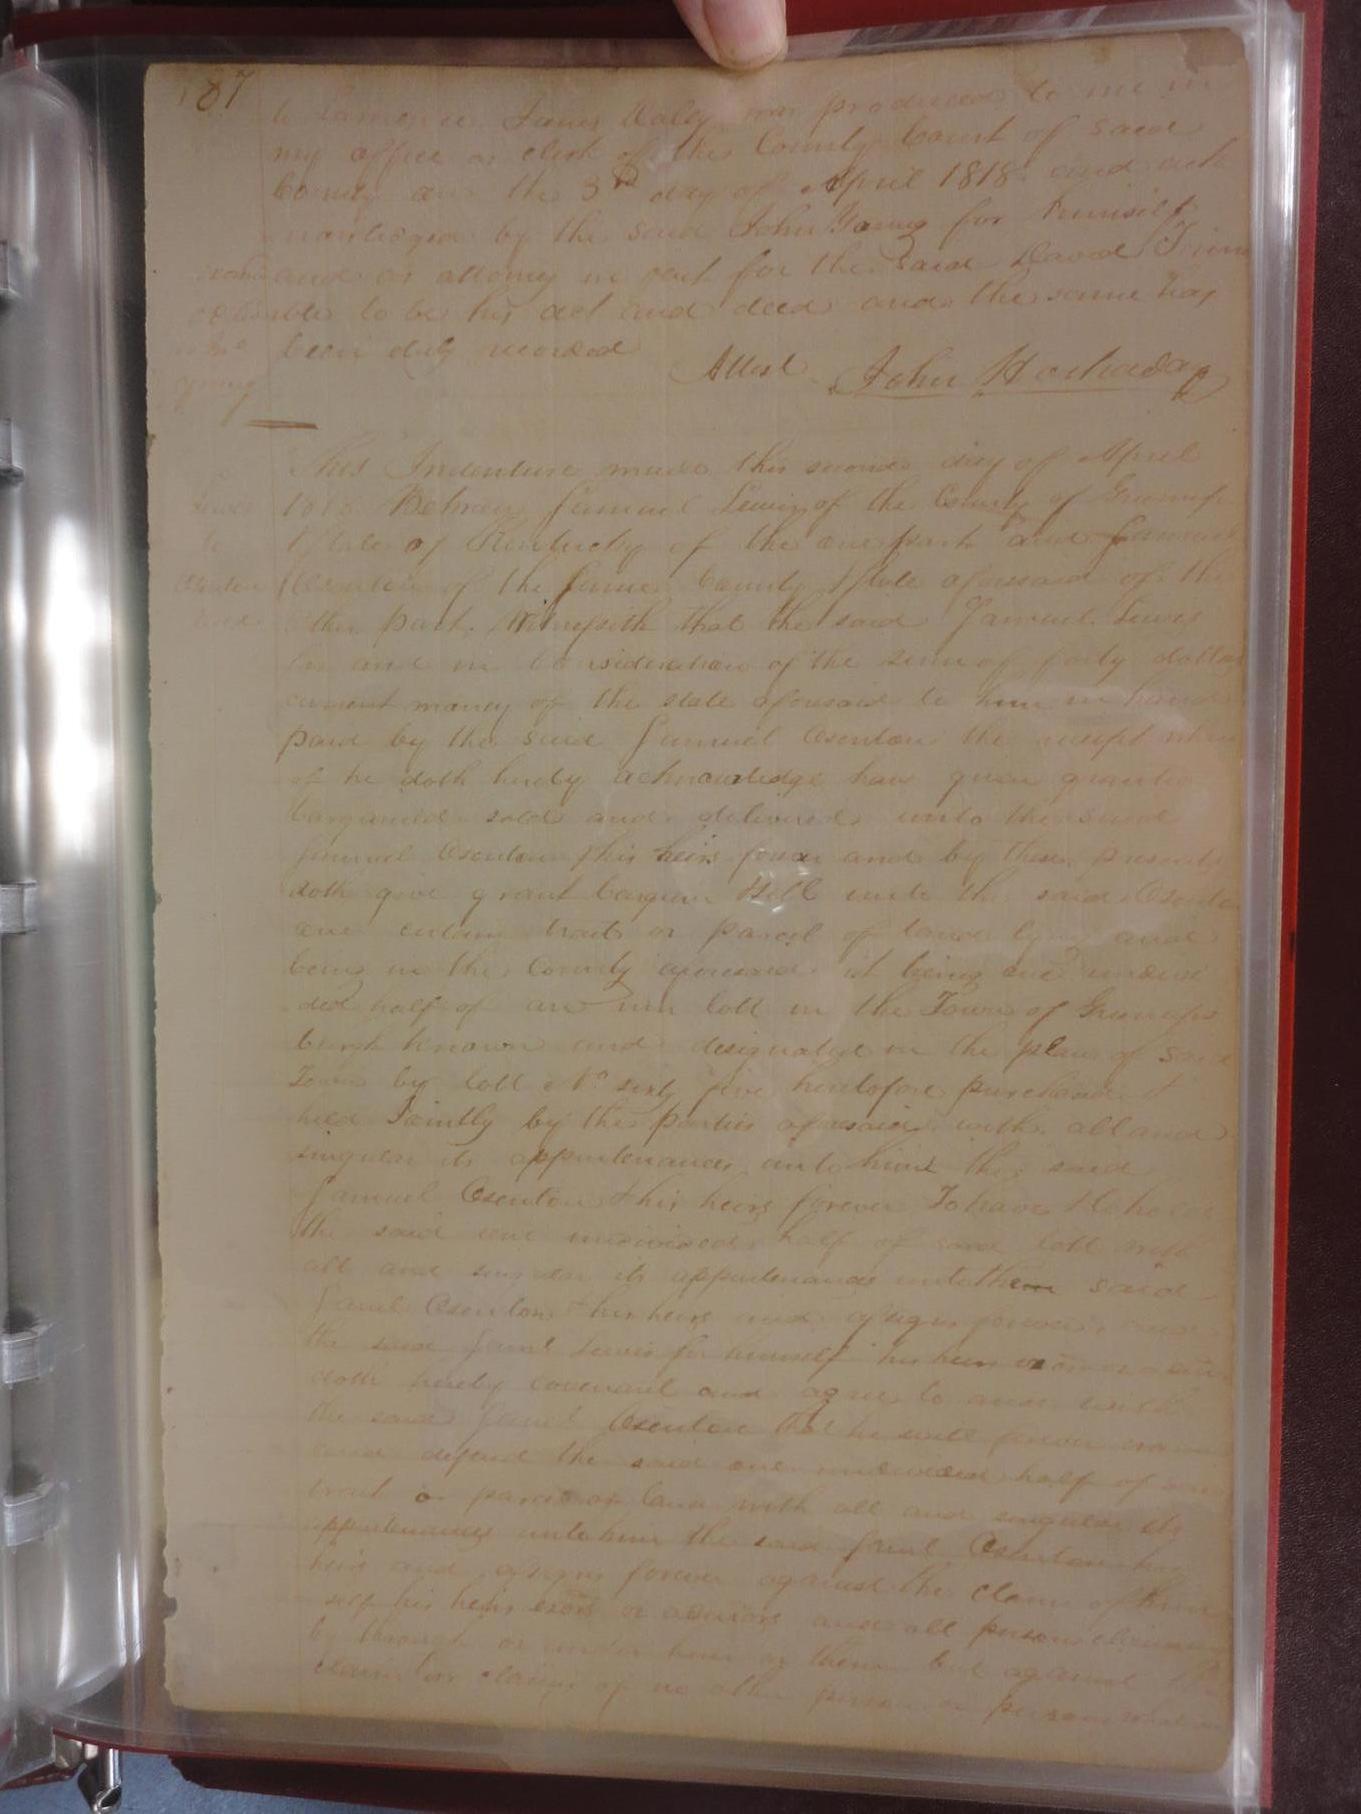 187
James Daley was produced to me in
my office as clerk of the County Court of said
County on the 3rd day of April 1818 and ack
nowledged by the said John Young for himself
and as attorney in part for the said David Trim
ble to be his act and deed and the same has
been duly recorded
Attest John Hockaday
Young
This Indenture made this second day of April
1818 Between Samuel Lewis of the County of Greenup
& State of Kentucky of the one part and Samuel
Osenton of the same County & State aforesaid of the
other part. Witnesseth that the said Samuel Lewis
for and in Consideration of the sum of forty dollars
current money of the state aforesaid to him in hand
paid by the said Samuel Osenton the receipt where
of he doth hereby acknowledge have given granted
bargained sold and delivered unto the said
Samuel Osenton & his heirs forever and by these presents
doth give grant bargain & sell unto the said Osenton
one certain tract or parcel of land lying and
being in the County aforesaid it being one undivi
ded half of an inn lott in the Town of Greenups
burgh known and designated in the plan of said
Town by lott No sixty five heretofore purchased &
held Jointly by the parties aforesaid with all and
singular its appurtenances unto him the said
Samuel Osenton & his heirs forever To have & to hold
the said one undivided half of said lott with
all and singular its appurtenances unto them said
Saml Osenton & his heirs and assigns forever and
the said Saml Lewis for himself his heirs
doth hereby covenant and agree to and with
the said Saml Osenton that he will forever
and defend the said one undivided half of said
tract or parcel of land with all and singular its
appurtenances unto him the said Saml Osenton his
heirs and assigns forever against the claim of him
self his heirs exors or admors and all persons claiming
by through or under him or them but against the
claim or claims of no other person or persons
Lewis
to
Osenton